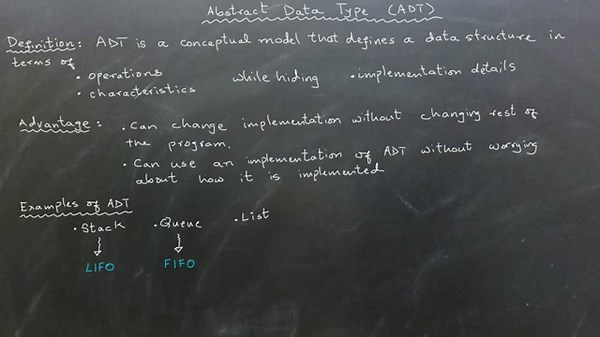 Abstract Data Type (ADT)
Definition: ADT is a conceptual model that defines a data structure in
terms of
• operations while hiding • implementation details
• characteristics
Advantage: • Can change implementation without changing rest of
the program.
• Can use an implementation of ADT without worrying
about how it is implemented
Examples of ADT
• Stack • Queue • List
LIFO FIFO